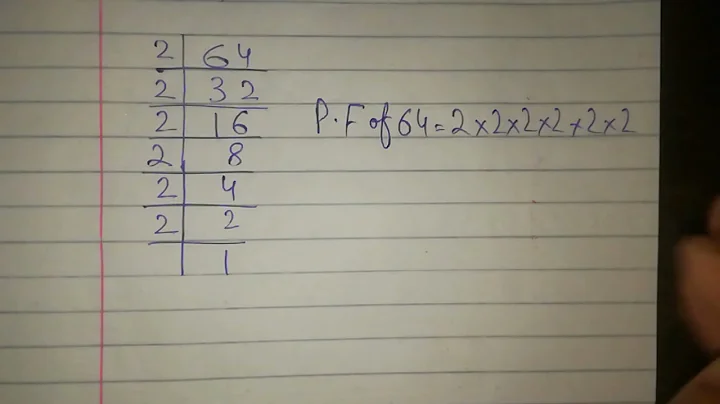 2 | 64
2 | 32
2 | 16
2 | 8
2 | 4
2 | 2
| 1
P.F of 64 = 2×2×2×2×2×2